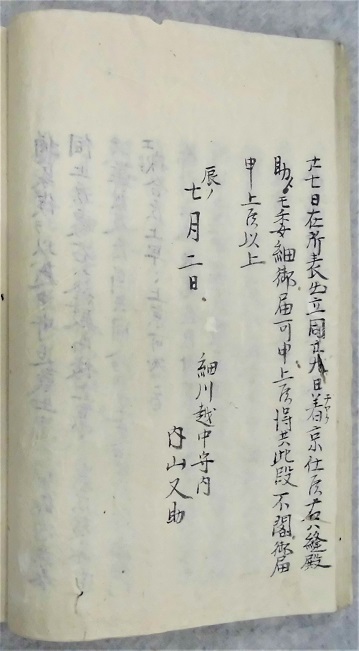 廿七日在所表出立同廿九日着京仕候右ハ縫殿
助ゟ委細御届可申上候得共此段不閣御届
申上候以上
辰ノ
七月二日
細川越中守内
内山又助